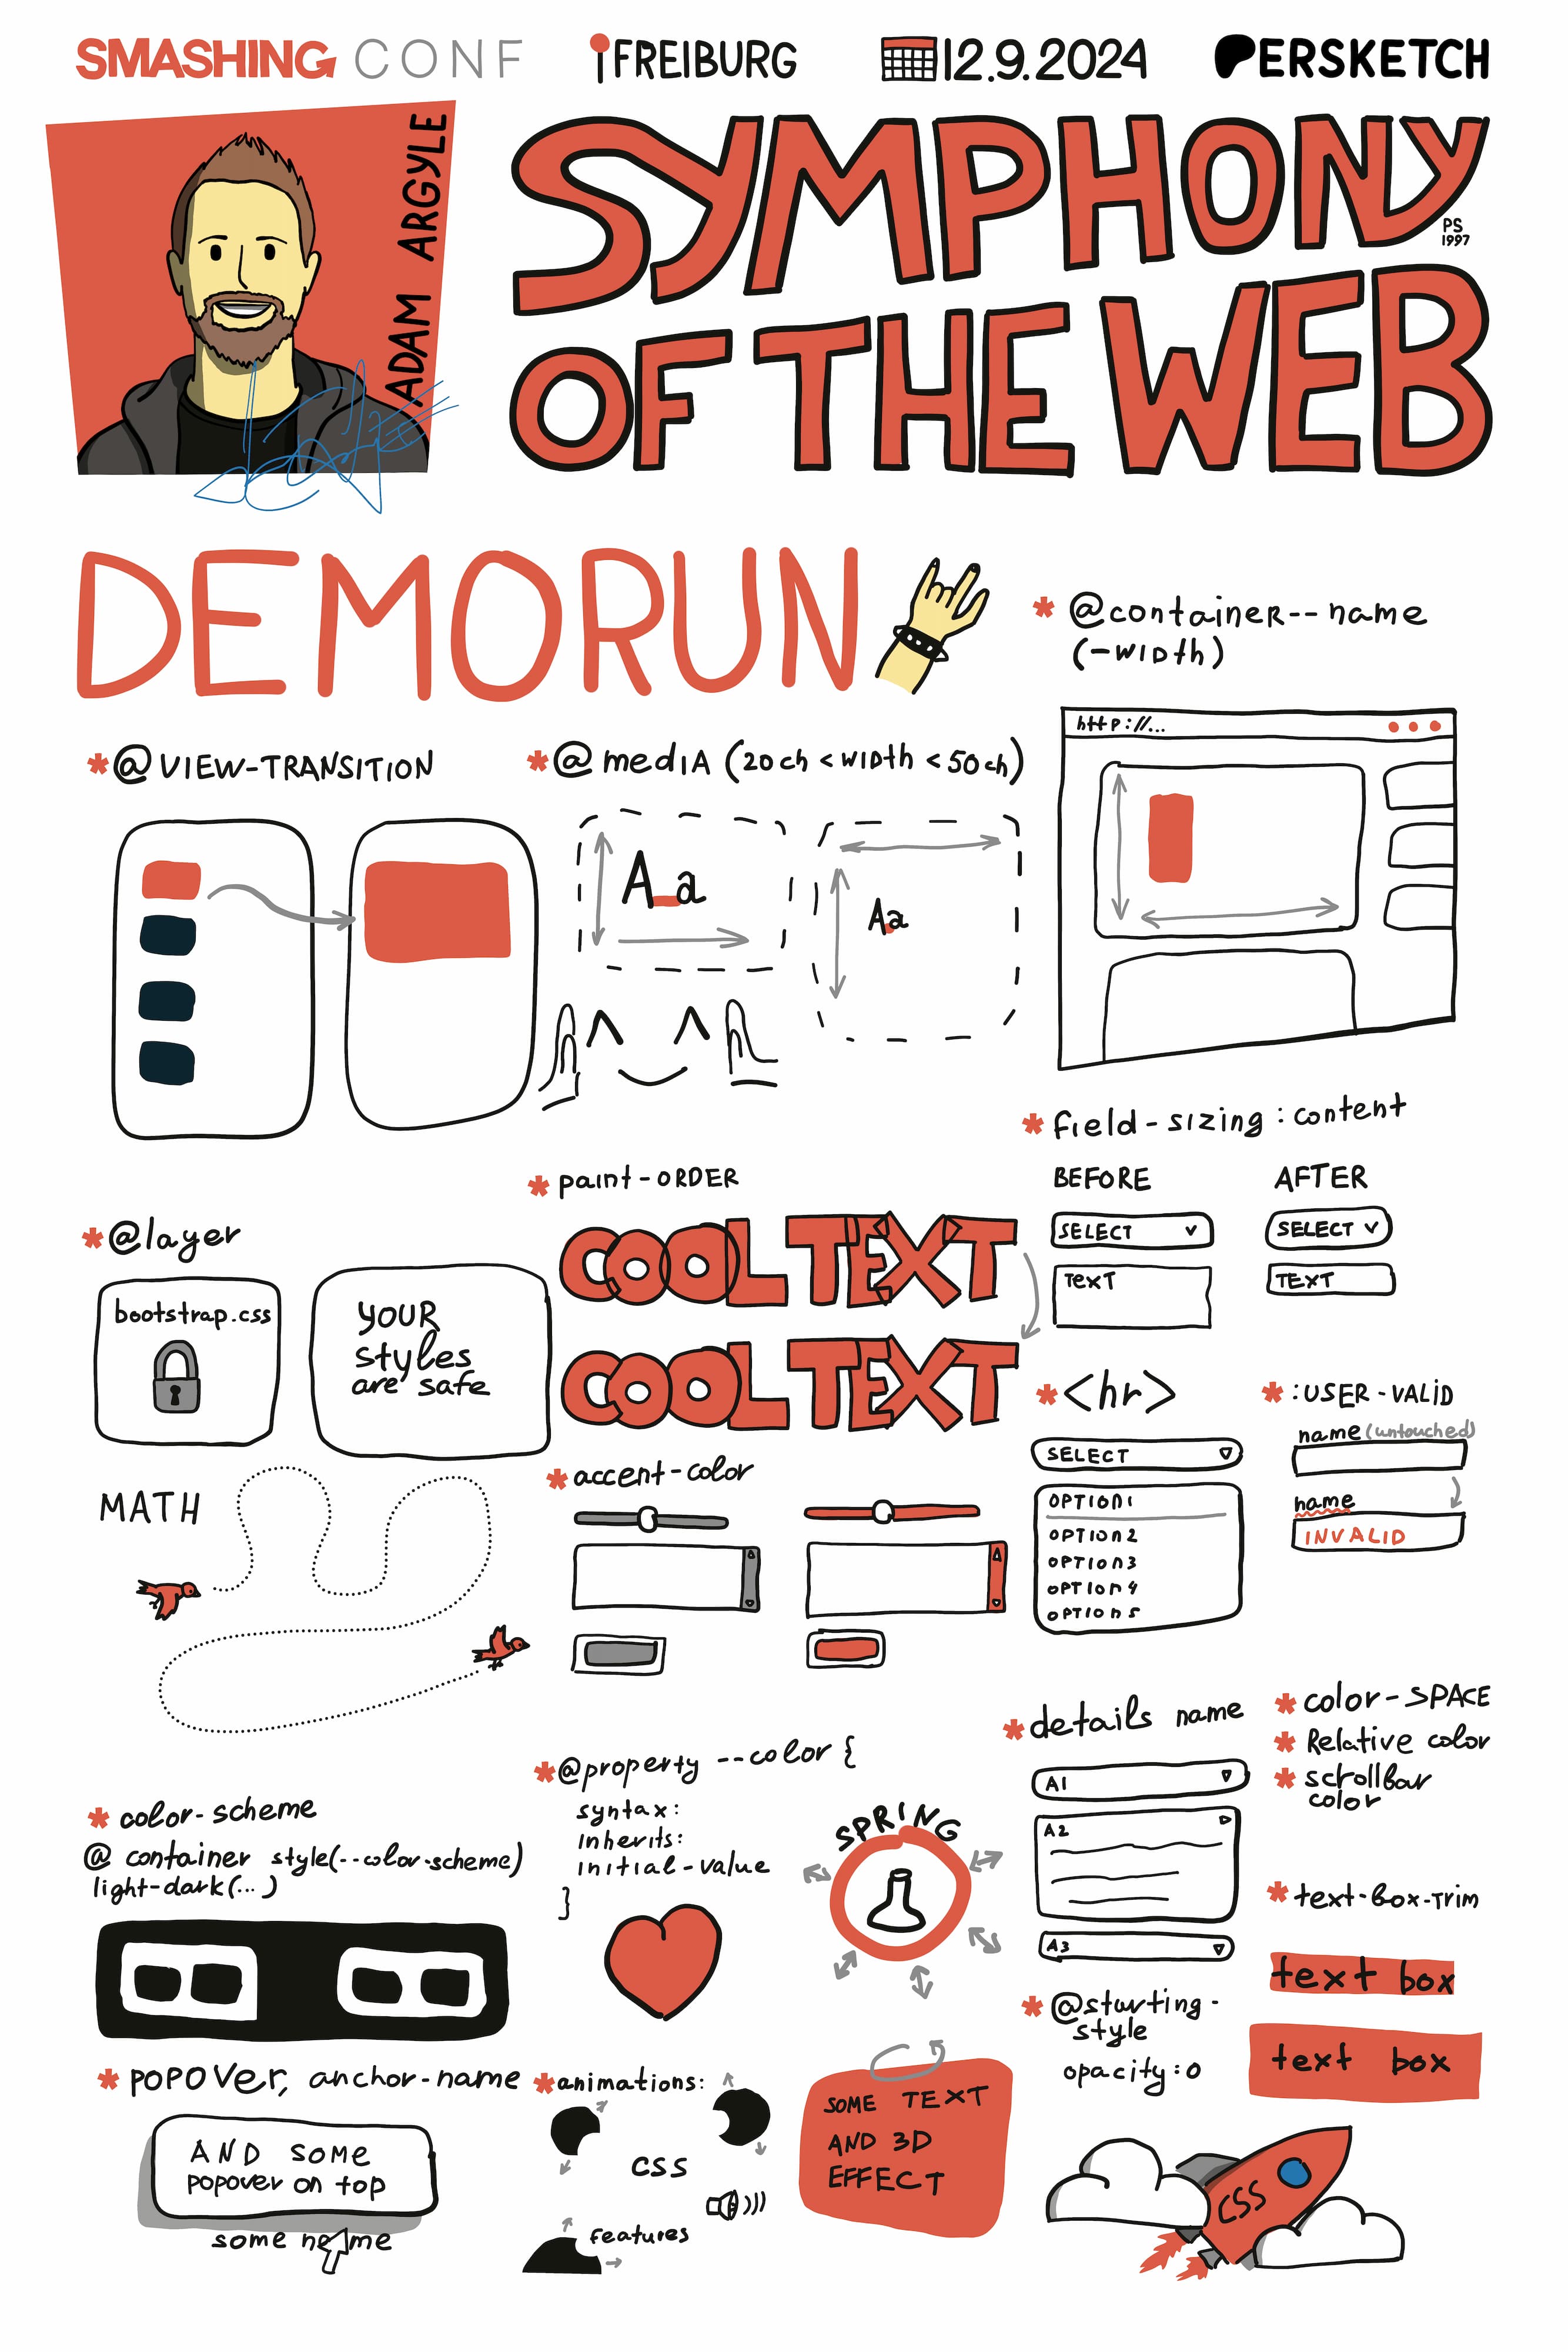 SMASHING CONF
FREIBURG
12.9.2024
PERSKETCH
ADAM ARGYLE
SYMPHONY
PS
1997
OF THE WEB
DEMORUN
* @container--name
(-WIDth)
http://...
* @ VIEW-TRANSITION
* @ medIA (20ch < WIDth < 50ch)
Aa
Aa
* field-sizing : content
BEFORE
AFTER
SELECT
TEXT
SELECT
TEXT
* @layer
bootstrap.css
YOUR
styles
are safe
* paint-ORDER
COOL TEXT
COOL TEXT
* <hr>
SELECT
OPTION1
OPTION2
OPTION3
OPTION4
OPTION5
* :USER-VALID
name (untouched)
name
INVALID
MATH
* accent-color
* details name
A1
A2
A3
* color-SPACE
* Relative color
* scrollbar
color
* color-scheme
@ container style(--color-scheme)
light-dark(...)
* @property --color {
syntax:
inherits:
initial-value
}
SPRING
* text-box-trim
text box
text box
* @starting-
style
opacity:0
* POPOVer, anchor-name
AND some
popover on top
some name
* animations:
CSS
features
SOME TEXT
AND 3D
EFFECT
CSS